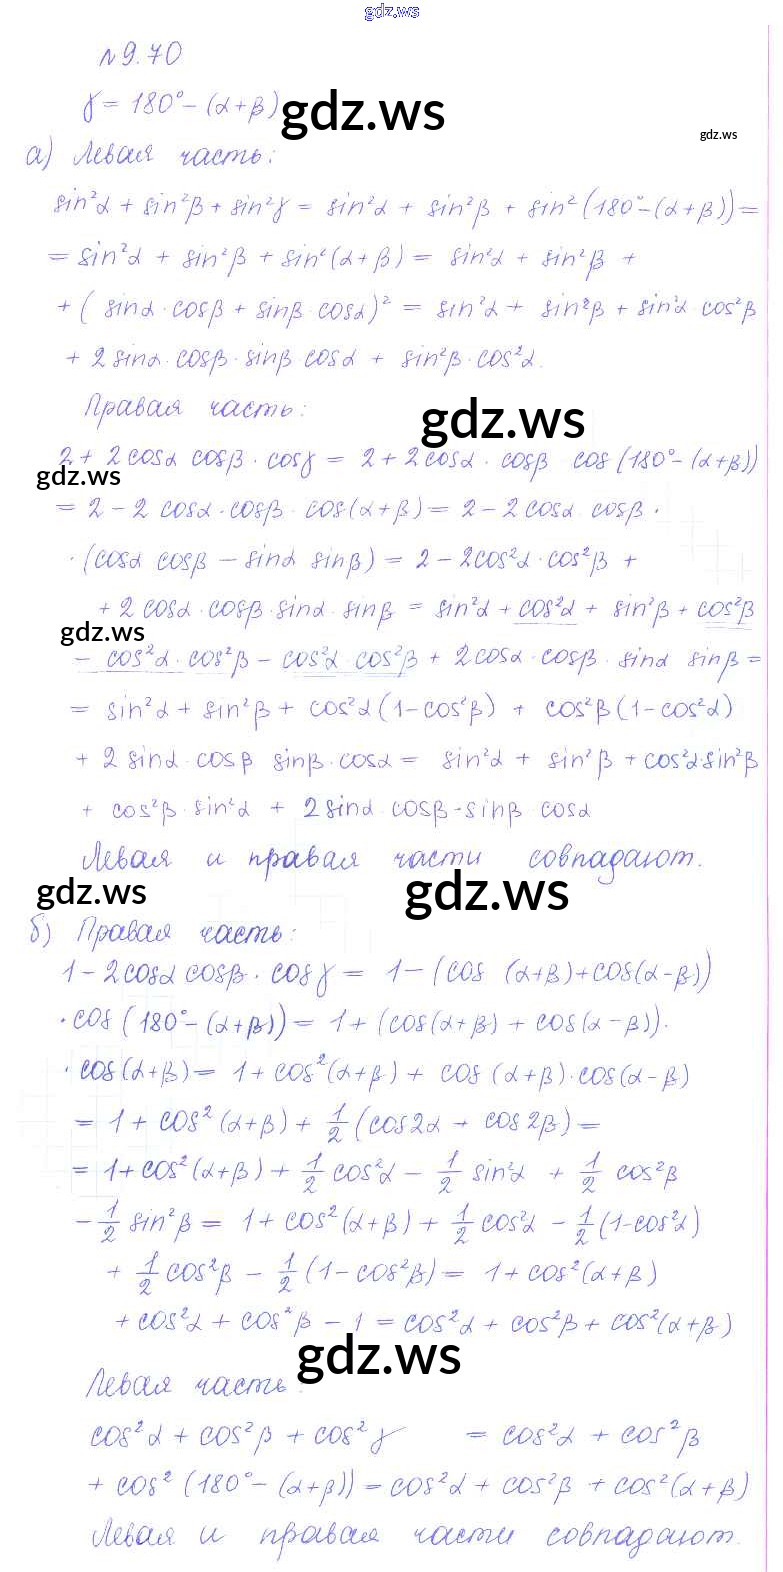 gdz.ws
№9.70
γ = 180° - (α+β) gdz.ws
gdz.ws
а) Левая часть:
sin²α + sin²β + sin²γ = sin²α + sin²β + sin²(180°-(α+β)) =
= sin²α + sin²β + sin²(α+β) = sin²α + sin²β +
+ ( sinα · cosβ + sinβ · cosα)² = sin²α + sin²β + sin²α · cos²β
+ 2 sinα · cosβ · sinβ cosα + sin²β · cos²α.
Правая часть: gdz.ws
2 + 2 cosα cosβ · cosγ = 2 + 2 cosα · cosβ cos (180° - (α+β))
gdz.ws
= 2 - 2 cosα · cosβ · cos(α+β) = 2 - 2 cosα cosβ ·
· (cosα cosβ - sinα sinβ) = 2 - 2cos²α · cos²β +
+ 2 cosα · cosβ · sinα · sinβ = sin²α + cos²α + sin²β + cos²β
gdz.ws
- cos²α · cos²β - cos²α · cos²β + 2cosα · cosβ · sinα sinβ =
= sin²α + sin²β + cos²α (1-cos²β) + cos²β (1-cos²α)
+ 2 sinα · cosβ sinβ · cosα = sin²α + sin²β + cos²α·sin²β
+ cos²β · sin²α + 2 sinα cosβ · sinβ cosα
Левая и правая части совпадают.
gdz.ws gdz.ws
б) Правая часть:
1 - 2cosα cosβ · cosγ = 1 - (cos (α+β) + cos(α-β))
· cos (180° - (α+β)) = 1 + (cos(α+β) + cos(α-β)) ·
· cos(α+β) = 1 + cos²(α+β) + cos (α+β)·cos(α-β)
= 1 + cos²(α+β) + 1/2 (cos2α + cos2β) =
= 1+ cos²(α+β) + 1/2 cos²α - 1/2 sin²α + 1/2 cos²β
- 1/2 sin²β = 1 + cos²(α+β) + 1/2 cos²α - 1/2 (1-cos²α)
+ 1/2 cos²β - 1/2 (1-cos²β) = 1 + cos²(α+β)
+ cos²α + cos²β - 1 = cos²α + cos²β + cos²(α+β)
gdz.ws
Левая часть:
cos²α + cos²β + cos²γ = cos²α + cos²β
+ cos² (180° - (α+β)) = cos²α + cos²β + cos²(α+β)
Левая и правая части совпадают.